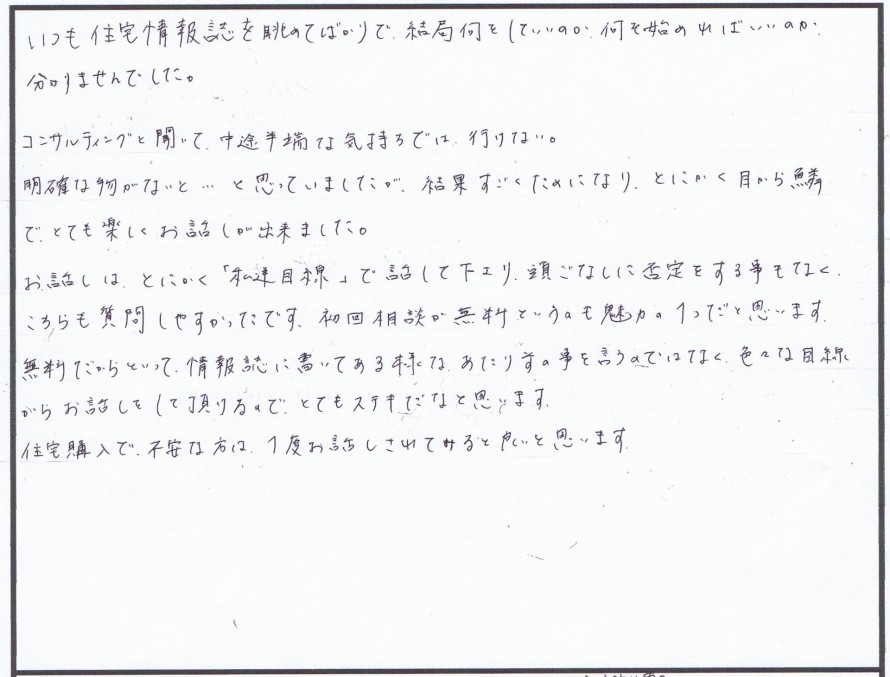 いつも住宅情報誌を眺めてばかりで、結局何をしていいのか、何を始めればいいのか、
分かりませんでした。
コンサルティングと聞いて、中途半端な気持ちでは、行けない。
明確な物がないと…と思っていましたが、結果すごくためになり、とにかく目から鱗
で、とても楽しくお話しが出来ました。
お話しは、とにかく「私達目線」で話して下さり、頭ごなしに否定をする事もなく、
こちらも質問しやすかったです。初回相談が無料というのも魅力の1つだと思います。
無料だからといって、情報誌に書いてある様な、あたり前の事を言うのではなく、色々な目線
からお話しをして頂けるので、とてもステキだなと思います。
住宅購入で、不安な方は、1度お話しされてみると良いと思います。